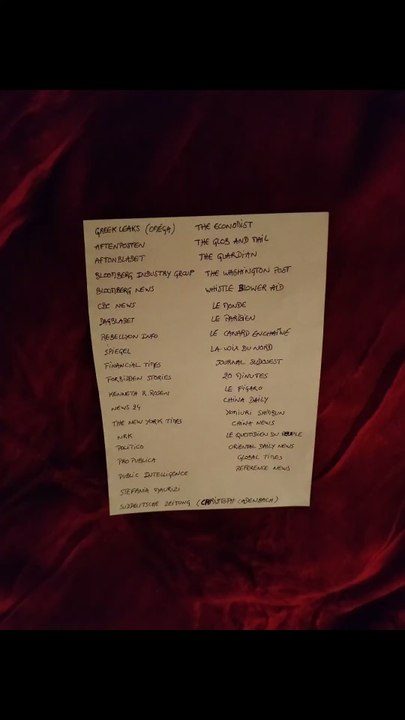 GREEK LEAKS (OMÉGA)
AFTENPOSTEN
AFTONBLADET
BLOOMBERG INDUSTRY GROUP
BLOOMBERG NEWS
CBC NEWS
DAGBLADET
REBELLION INFO
SPIEGEL
FINANCIAL TIMES
FORBIDDEN STORIES
KENNETH R. ROSEN
NEWS 24
THE NEW YORK TIMES
NRK
POLITICO
PRO PUBLICA
PUBLIC INTELLIGENCE
STEFANIA MAURIZI
SUDDEUTSCHE ZEITUNG (CHRISTOPH CADENBACH)
THE ECONOMIST
THE GLOB AND MAIL
THE GUARDIAN
THE WASHINGTON POST
WHISTLE BLOWER AID
LE MONDE
LE PARISIEN
LE CANARD ENCHAÎNÉ
LA VOIX DU NORD
JOURNAL SUDOUEST
20 MINUTES
LE FIGARO
CHINA DAILY
YOMIURI SHIMBUN
CHINA NEWS
LE QUOTIDIEN DU PEUPLE
ORIENTAL DAILY NEWS
GLOBAL TIMES
REFERENCE NEWS